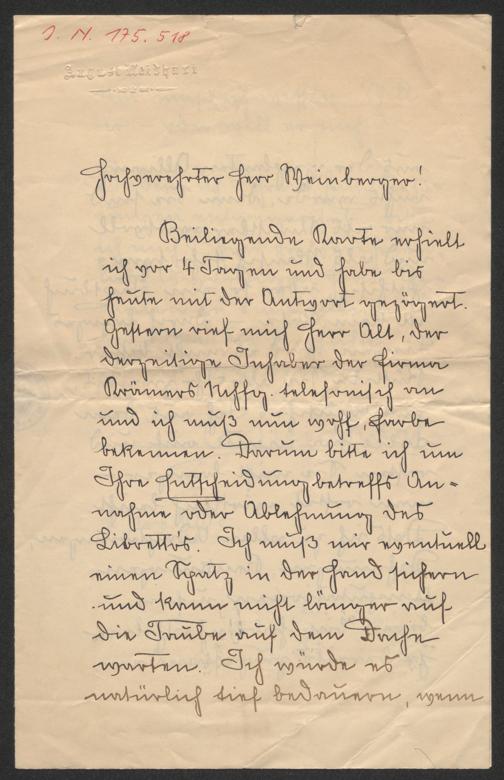 J. N. 175.518
August Neidhart
Hochverehrter Herr Weinberger!
Beiliegende Karte erhielt
ich vor 4 Tagen und habe bis
heute mit der Antwort gezögert.
Gestern rief mich Herr Alt, der
derzeitige Inhaber der Firma
Krämers Nchfg. telefonisch an
und ich muß nun wohl Farbe
bekennen. Darum bitte ich um
Ihre Entscheidung betreffs An=
nahme oder Ablehnung des
Libretto's. Ich muß mir eventuell
einen Spatz in der Hand sichern
und kann nicht länger auf
die Taube auf dem Dache
warten. Ich würde es
natürlich tief bedauern, wenn